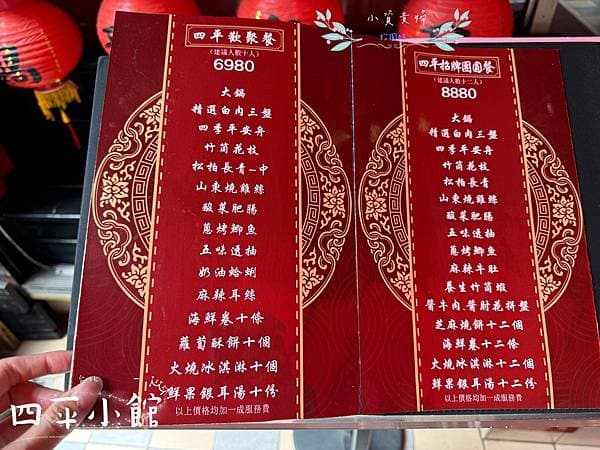 四平歡聚餐
(建議人數十人)
6980
大鍋
精選白肉三盤
四季平安舟
竹筒花枝
松柏長青-中
山東燒雞絲
酸菜肥腸
蔥烤鯽魚
五味透抽
奶油蛤蜊
麻辣耳絲
海鮮卷十條
蘿蔔酥餅十個
火燒冰淇淋十個
鮮果銀耳湯十份
以上價格均加一成服務費
四平招牌團圓餐
(建議人數十二人)
8880
大鍋
精選白肉三盤
四季平安舟
竹筒花枝
松柏長青
山東燒雞絲
酸菜肥腸
五味透抽
蔥烤鯽魚
麻辣牛肚
養生竹筒蝦
醬牛肉.醬肘花拼盤
芝麻燒餅十二個
海鮮卷十二條
火燒冰淇淋十二個
鮮果銀耳湯十二份
以上價格均加一成服務費
小資貴婦
四平小館